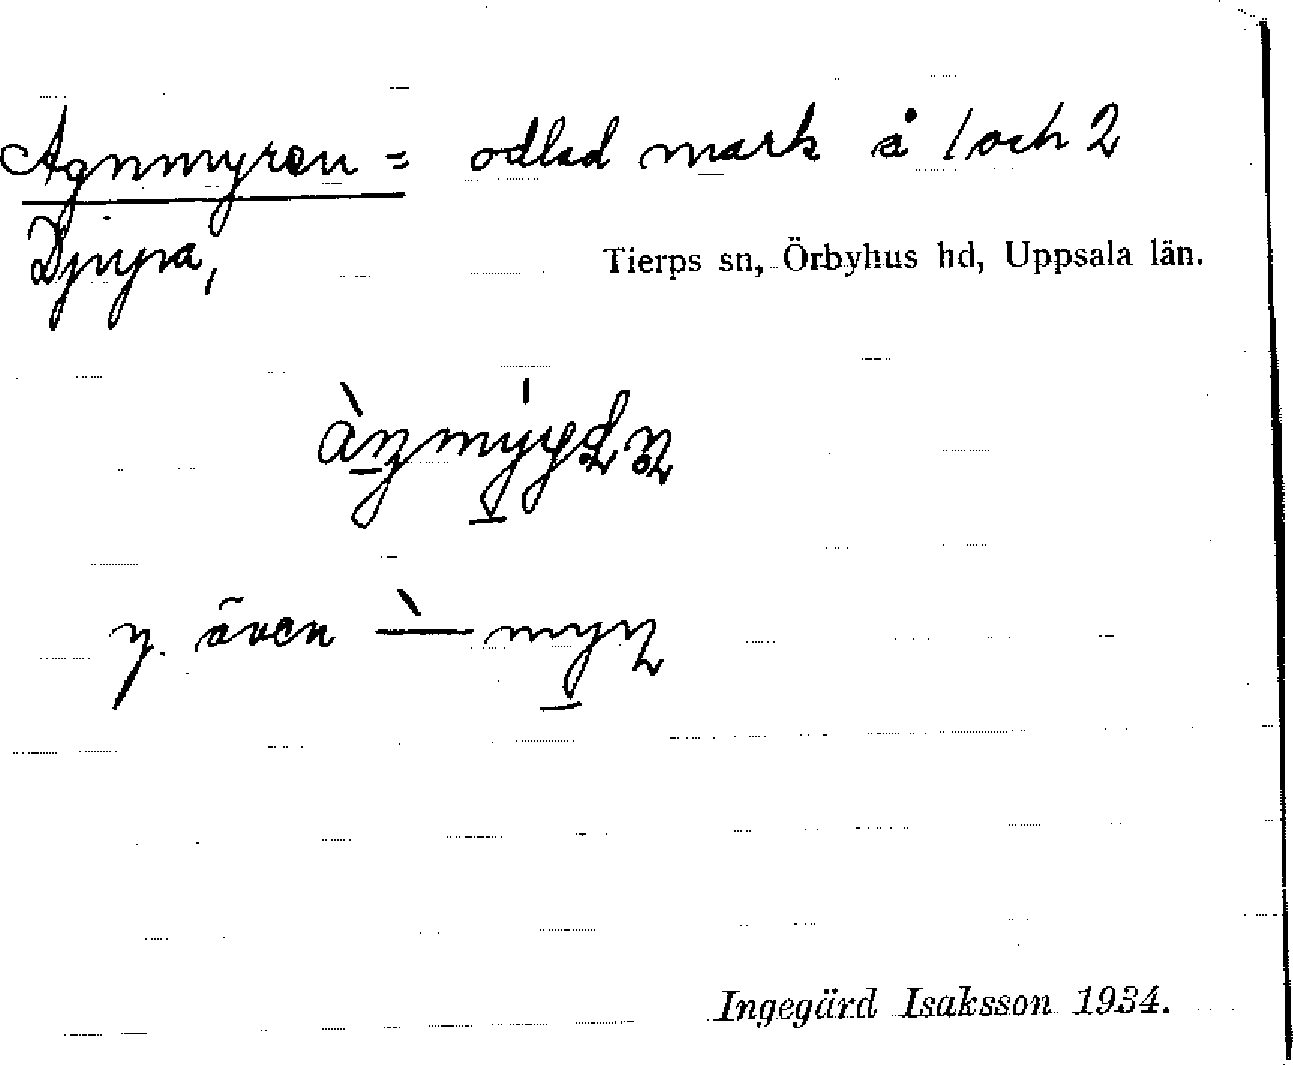 Agnmyren = odlad mark å 1 och 2
Tierps sn, Örbyhus hd, Uppsala län.
y. även
Ingegärd Isaksson 1934.